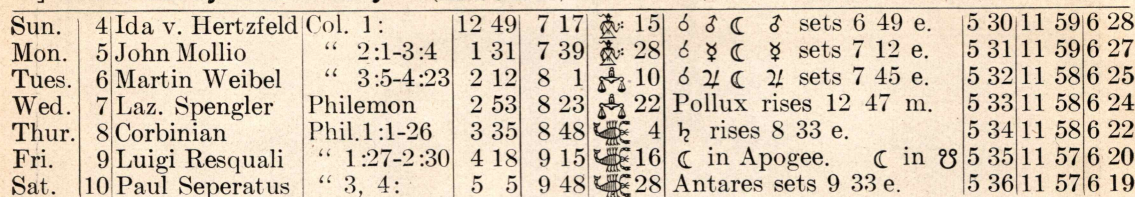 Sun. 4 Ida v. Hertzfeld Col. 1: 12 49 7 17 15 ☌ ♂ ☾ ♂ sets 6 49 e. 5 30 11 59 6 28
Mon. 5 John Mollio “ 2:1-3:4 1 31 7 39 28 ☌ ☿ ☾ ☿ sets 7 12 e. 5 31 11 59 6 27
Tues. 6 Martin Weibel “ 3:5-4:23 2 12 8 1 ♎ 10 ☌ ♃ ☾ ♃ sets 7 45 e. 5 32 11 58 6 25
Wed. 7 Laz. Spengler Philemon 2 53 8 23 ♎ 22 Pollux rises 12 47 m. 5 33 11 58 6 24
Thur. 8 Corbinian Phil.1:1-26 3 35 8 48 ♏ 4 ♄ rises 8 33 e. 5 34 11 58 6 22
Fri. 9 Luigi Resquali “ 1:27-2:30 4 18 9 15 ♏ 16 ☾ in Apogee. ☾ in ☋ 5 35 11 57 6 20
Sat. 10 Paul Seperatus “ 3, 4: 5 5 9 48 ♏ 28 Antares sets 9 33 e. 5 36 11 57 6 19